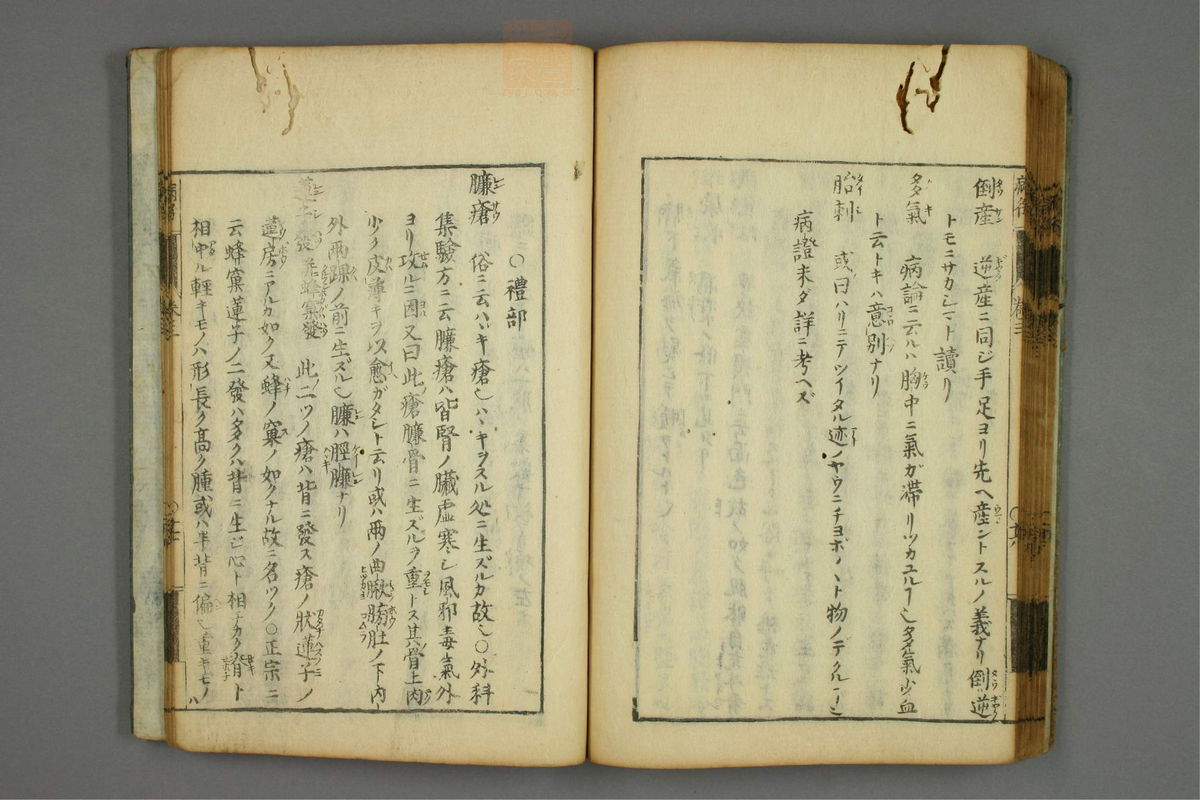 倒産 逆産ニ同ジ手足ヨリ先ヘ産ントスルノ義ナリ倒逆
トモニサカシマト讀リ
多氣 病論ニ云ルハ胸中ニ氣ガ滞リツカユルヿ也多氣少血
ト云トキハ意別ナリ
胎刺 或曰ハリニテツイタル迹ノヤウニチヨボ〱ト物ノデクルヿ也
病證未ダ詳ニ考ヘズ
○禮部
臁瘡 俗ニ云ハヾキ瘡也ハヾキヲスル処ニ生ズルカ故也○外科
集驗方ニ云臁瘡ハ皆腎ノ臓虚寒シ風邪毒氣外
ヨリ攻ルニ因又曰此瘡臁骨ニ生ズルヲ重トス其骨上肉
少ク皮薄キヲ以愈ガタシト云リ或ハ兩ノ曲䐐膀肚ノ下内
外兩踝ノ前ニ生ズル也臁ハ脛臁ナリ
發 蜂窠發 此二ツノ瘡ハ背ニ發ス瘡ノ狀蓮子ノ
房ニアルカ如ク又蜂ノ窠ノ如クナル故ニ名ツク○正宗ニ
云蜂窠蓮子ノ二發ハ多クハ背ニ生ジ心ト相チカク脊ト
相中ル輕キモノハ形長ク高ク腫或ハ半背ニ偏也重キモノハ